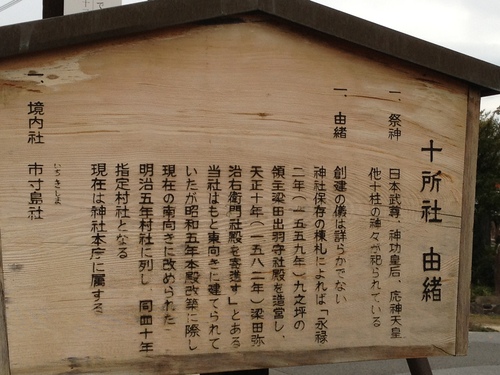 十所社 由緒
一、祭神 日本武尊、神功皇后、応神天皇
他十柱の神々が祀られている
一、由緒
創建の儀は詳らかでない
神社保存の棟札によれば「永禄
二年(一五五九年)九之坪の
領主梁田出羽守社殿を造営し、
天正十年(一五八二年)梁田弥
治右衛門社殿を寄進す」とある
当社はもと東向きに建てられて
いたが昭和五年本殿改築に際し
現在の南向きに改められた
明治五年村社に列し、同四十年
指定村社となる
現在は神社本庁に属する
一、境内社 市寸島社
いちきしま